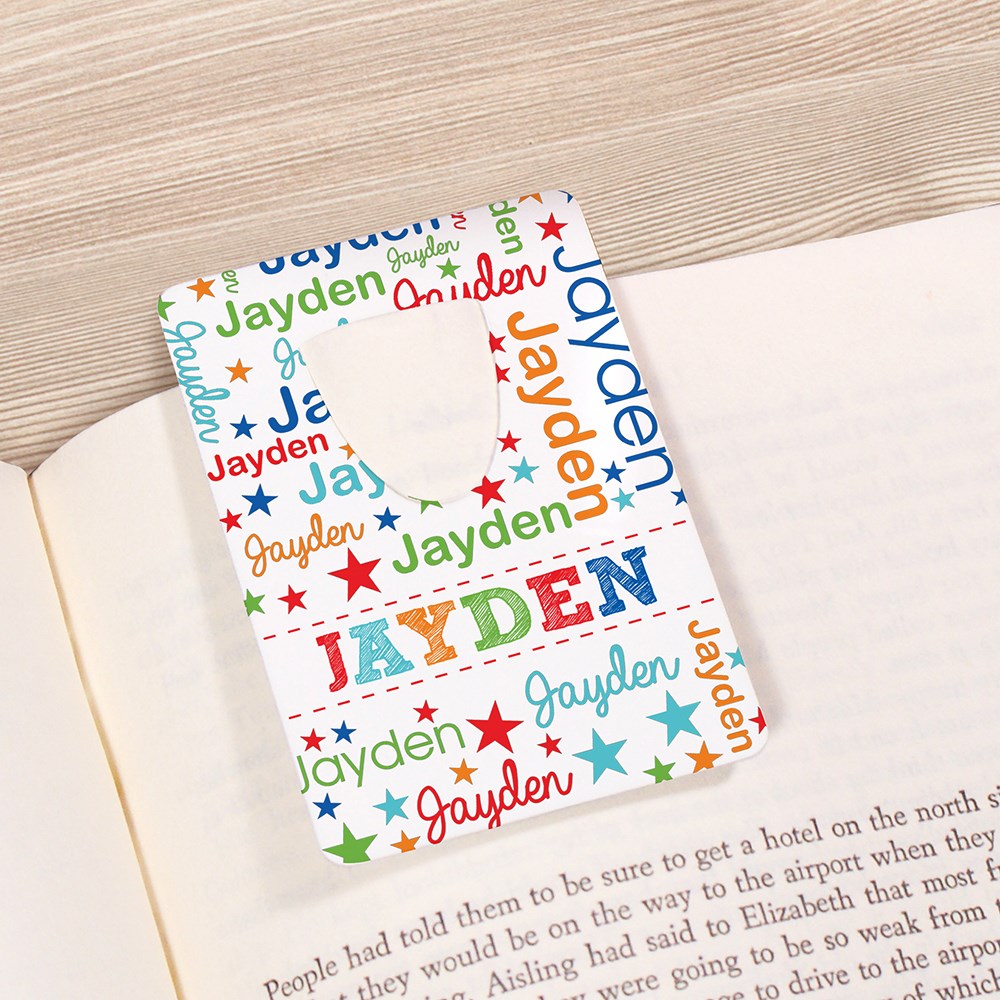 Jayden
Jayden
Jayden
Jayden
Jayden
den
en
Jayden
Jayden
Jayden
Ja
Jayden
Jay
Jayden
Jayden
JAYDEN
Jayden
Jayden
Jayden
Jayden
People had told them to be sure to get a hotel on the north si
they would be on the way to the airport when they
Aisling had said to Elizabeth that most fr
were going to be so weak from t
to drive to the airpor
of which